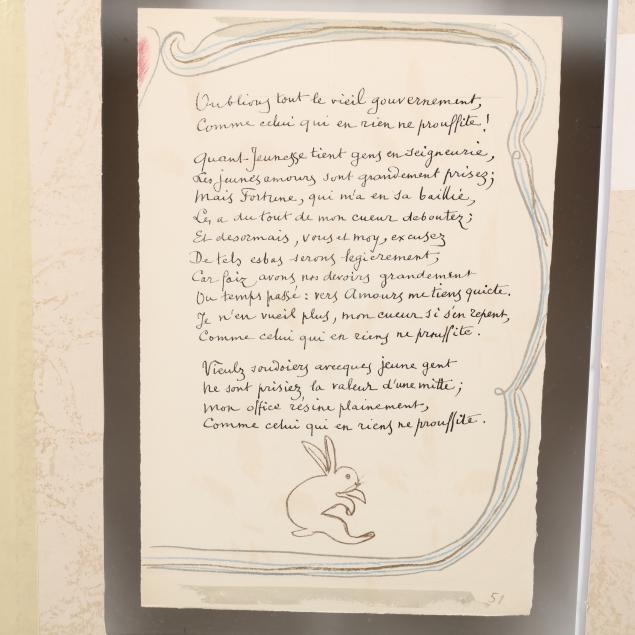 Oublions tout le vieil gouvernement,
Comme celui qui en rien ne prouffite!
Quant Jeunesse tient gens en seigneurie,
Les jeunes amours sont grandement prisez;
Mais Fortune, qui m'a en sa baillie,
Les a du tout de mon cueur deboutez;
Et desormais, vous et moy, excusez
De tels esbas serons legierement,
Car faiz avons nos devoirs grandement
Ou temps passé: vers Amours me tiens quicte.
Je n'en vueil plus, mon cueur si s'en repent,
Comme celui qui en riens ne prouffite.
Vieulz soudoiers avecques jeune gent
Ne sont prisiez la valeur d'une mitte;
Mon office résine plainement,
Comme celui qui en riens ne prouffite.
51